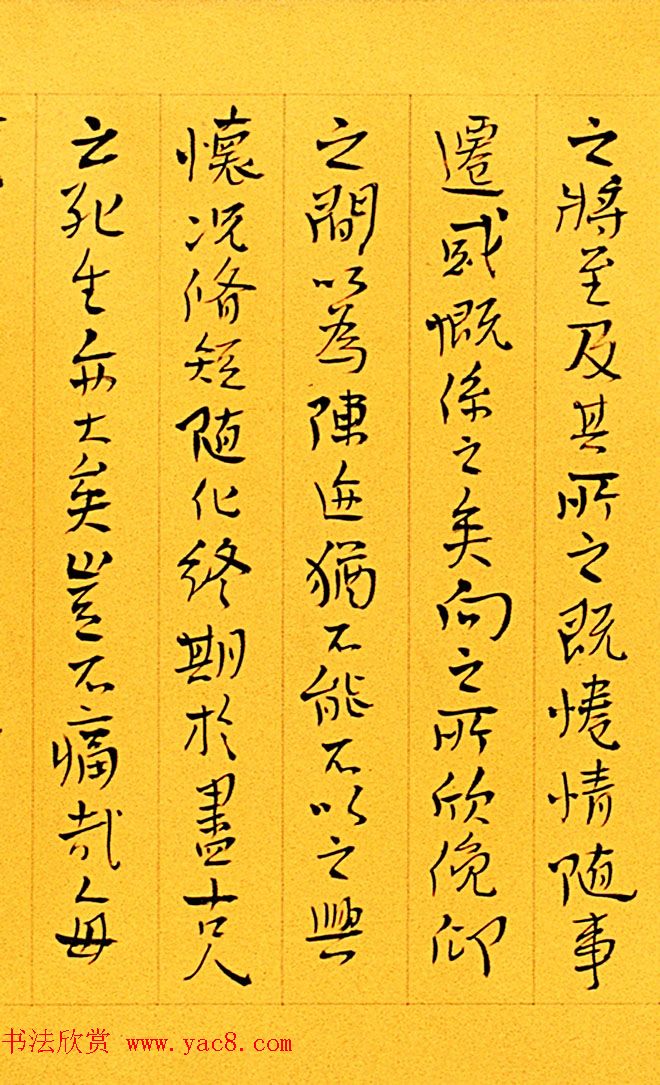 之將至及其所之既惓情随事
遷感慨係之矣向之所欣俛仰
之間以為陳迹猶不能不以之興
懷况脩短随化终期於盡古人
云死生亦大矣豈不痛哉每
书法欣赏 www.yac8.com